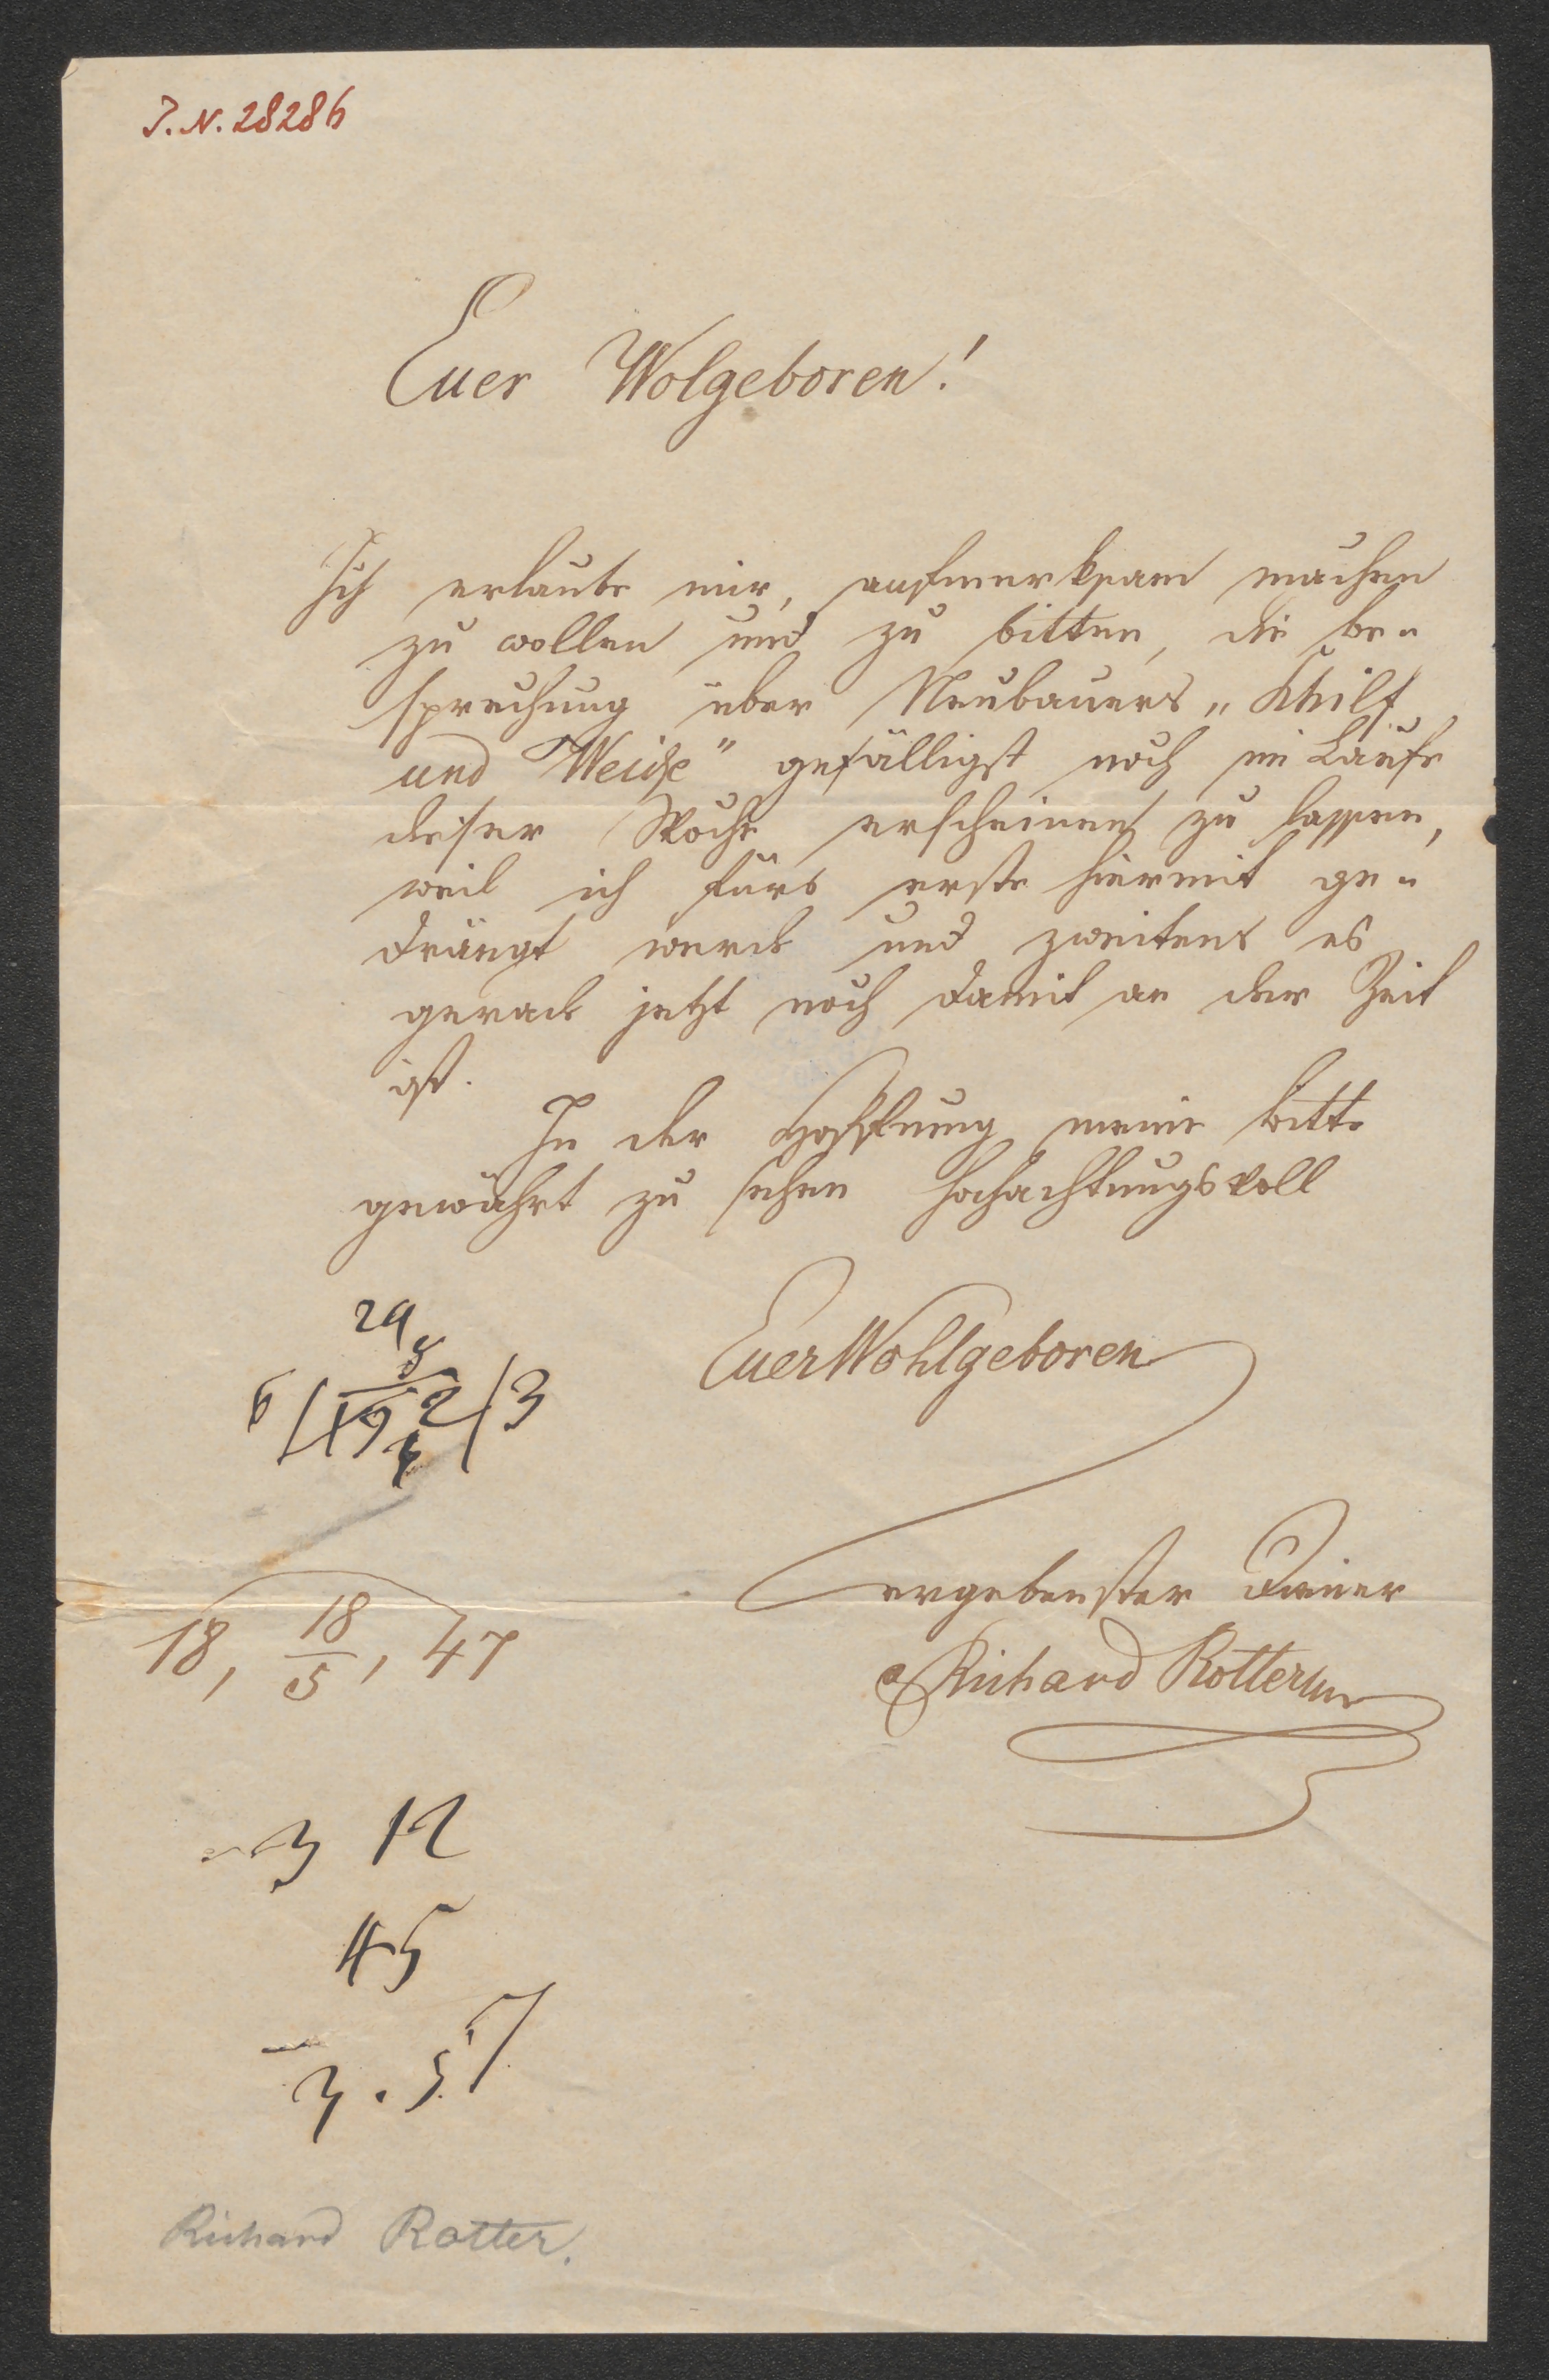 J. N. 28286
Euer Wolgeboren!
Ich erlaube mir, aufmerksam machen
zu wollen und zu bitten, die be-
sprechung über Neubauers „Schilf
und Weide" gefälligst noch im Laufe
dieser Woche erscheinen zu lassen,
weil ich fürs erste hiermit ge-
drängt werde und zweitens es
gerade jetzt noch damit an der Zeit
ist.
In der Hoffnung meine bitte
gewährt zu sehen hochachtungsvoll
Euer Wohlgeboren
ergebenster Diener
Richard Rotter
18, 18/5, 47
3 12
45
3.57
Richard Rotter.